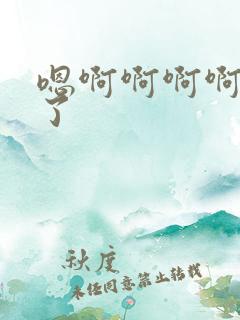 嗯啊啊啊啊
了
秋度
未经同意禁止转载